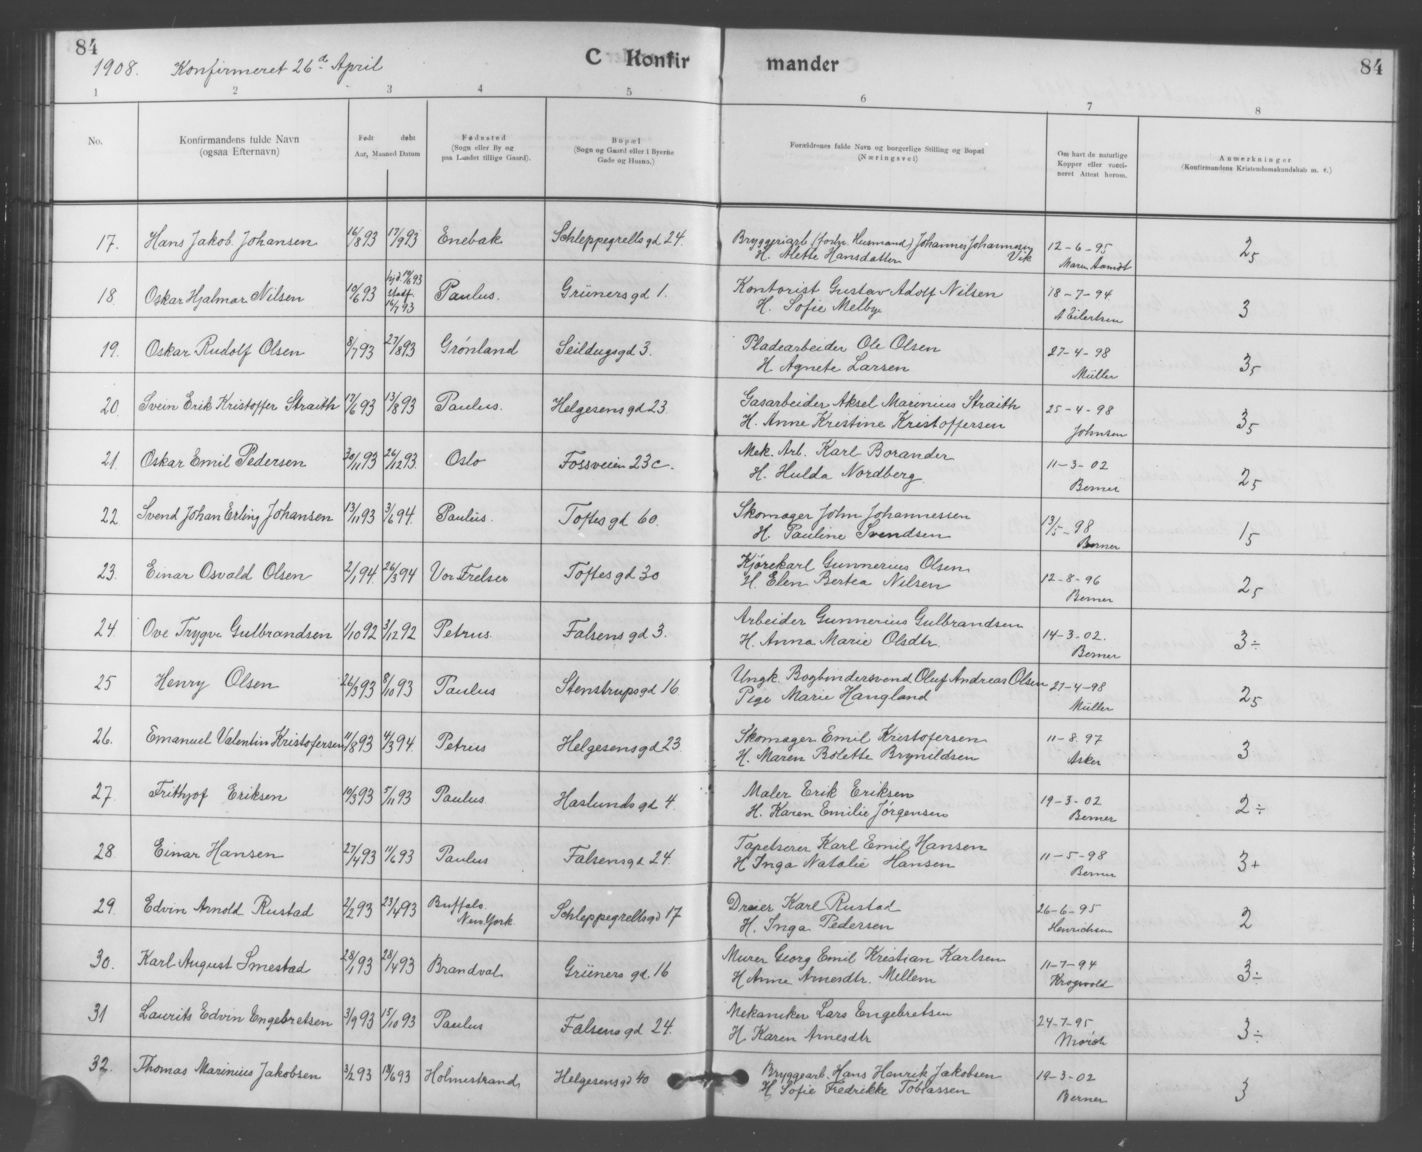 84
1908. Konfirmeret 26de April
C Konfir mander
84
1 2 3 4 5 6 7 8
No.
Konfirmandens fulde Navn
(ogsaa Efternavn)
Født døbt
Aar, Maaned Datum
Fødested
(Sogn eller By og
paa Landet tillige Gaard).
Bopæl
(Sogn og Gaard eller i Byerne
Gade og Husno.)
Forældrenes fulde Navn og borgerlige Stilling og Bopæl
(Næringsvei)
Om havt de naturlige
Kopper eller vacci-
neret Attest herom.
Anmerkninger
(Konfirmandens Kristendomskundskab m. f.)
17. Hans Jakob Johansen 16/8 93 17/9 93 Enebak Schleppegrellsgd 24. Bryggeriarb. (forhv. Husmand) Johannes Johannesen Vik
H. Alette Hansdatter
12-6-95
Maren Aamodt
2 5
18. Oskar Hjalmar Nilsen 10/6 93 16/7 93 Paulus. Grünersgd 1. Kontorist Gustav Adolf Nilsen
H. Sofie Melby
18-7-94
A Eilertsen
3
19. Oskar Rudolf Olsen 8/7 93 27/8 93 Grønland Seildugsgd 3. Pladearbeider Ole Olsen
H Agnete Larsen
27-4-98
Müller
3 5
20. Svein Erik Kristoffer Straith 17/6 93 13/8 93 Paulus. Helgesensgd 23. Gasarbeider Aksel Marinius Straith
H. Anne Kristine Kristoffersen
25-4-98
Johnsen
3 5
21. Oskar Emil Pedersen 30/11 93 26/12 93. Oslo Fossveien 23c. Mek. Arb. Karl Borander
H. Hulda Nordberg
11-3-02
Berner
2 5
22 Svend Johan Erling Johansen 13/11 93 3/6 94. Paulus. Toftesgd 60. Skomager John Johannessen
H. Pauline Svendsen
13/5-98
Berner
1 5
23. Einar Osvald Olsen 2/1 94 26/3 94 Vor Frelser Toftesgd 30 Kjørekarl Gunnerius Olsen
H Elen Bertea Nilsen
12-8-96
Berner
2 5
24. Ove Trygve Gulbrandsen 1/10 92 3/12 92 Petrus. Falsensgd 3. Arbeider Gunnerius Gulbrandsen
H. Anna Marie Olsdtr.
14-3-02.
Berner
3÷
25 Henry Olsen 26/3 93 8/10 93 Paulus Stenstrupsgd 16 Ungk. Bogbindersvend Oluf Andreas Olsen
Pige Marie Haugland
27-4-98
Müller
2 5
26. Emanuel Valentin Kristofersen 11/8 93 4/3 94 Petrus Helgesensgd 23 Skomager Emil Kristofersen
H. Maren Bolette Brynildsen
11-8.97
Asker
3
27 Frithjof Eriksen 10/9 93 5/11 93 Paulus Haslundsgd 4. Maler Erik Eriksen
H. Karen Emilie Jørgensen
19-3-02
Berner
2÷
28 Einar Hansen 27/4 93 11/6 93 Paulus Falsensgd 24. Tapetserer Karl Emil Hansen
H Inga Natalie Hansen
11-5-98
Berner
3+
29. Edvin Arnold Rustad 2/2 93 23/4 93 Buffalo, New York Schleppegrellsgd 17 Dreier Karl Rustad
H. Inga Pedersen
26-6-95
Henrichsen
2
30. Karl August Smestad 28/1 93 28/4 93 Brandval Grünersgd 16 Murer Georg Emil Kristian Karlsen
H Anne Arnesdtr. Mellem
11-7-94
Krogvold
3÷
31 Laurits Edvin Engebretsen 3/9 93 15/10 93 Paulus Falsensgd 24. Mekaniker Lars Engebretsen
H Karen Arnesdtr
24-7-95
3÷
32. Thomas Marinius Jakobsen 3/2 93 18/6 93 Holmestrand Helgesensgd 40 Bryggearb. Hans Henrik Jakobsen
H Sofie Fredrikke Tobiassen
19-3-02
Berner
3